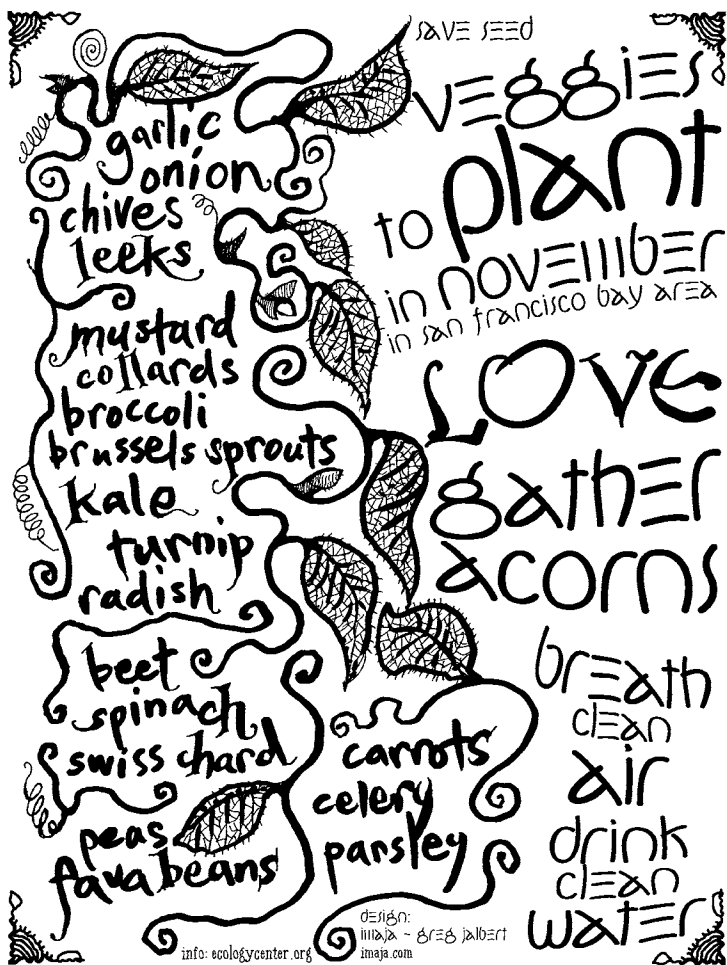 save seed
veggies
to plant
in november
in san francisco bay area
Love
gather
acorns
breath
clean
air
drink
clean
water
garlic
onion
chives
leeks
mustard
collards
broccoli
brussels sprouts
kale
turnip
radish
beet
spinach
swiss chard
peas
fava beans
carrots
celery
parsley
info: ecologycenter.org
design:
imaja - greg jalbert
imaja.com